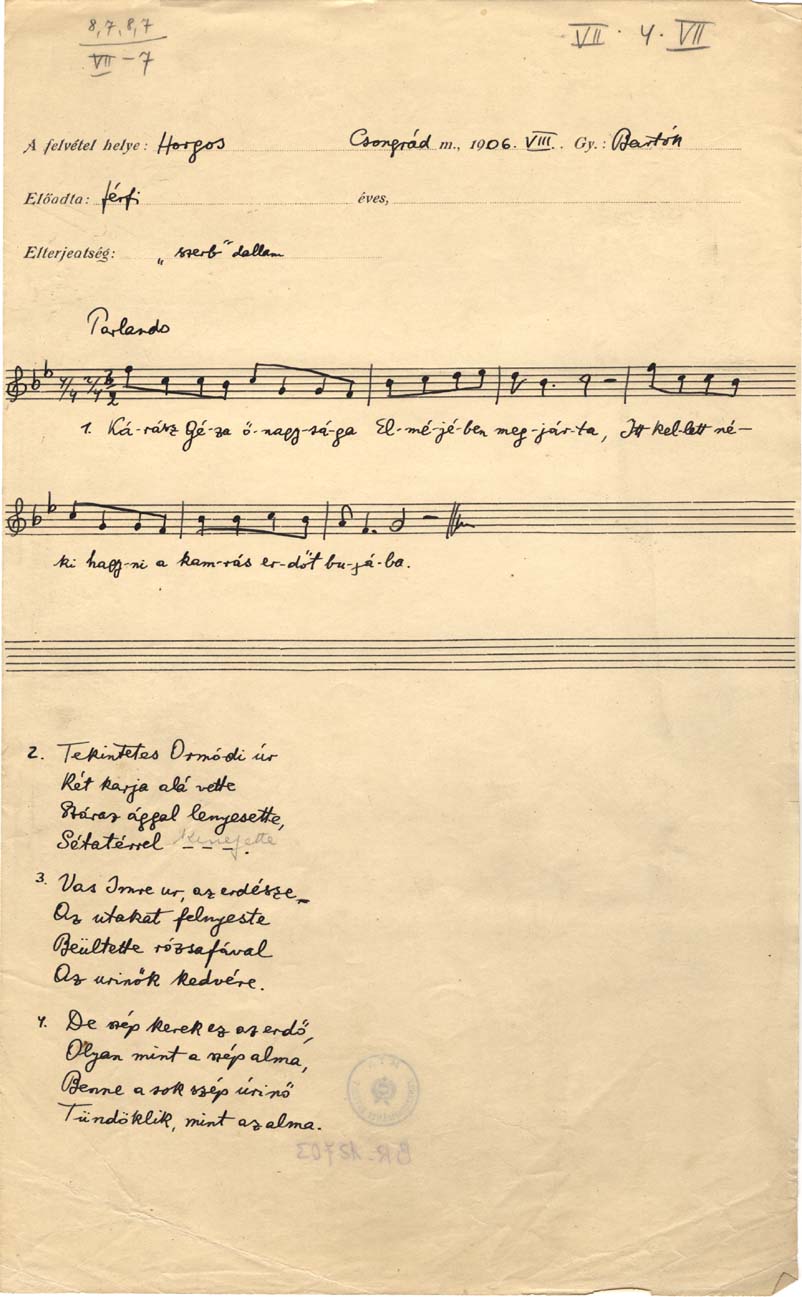 8,7,8,7
VII-7
VII. 4. VII
A felvétel helye: Horgos Csongrád m., 1906. VIII. Gy.: Bartók
Előadta: férfi éves,
Elterjedtség: „szerb" dallam
Parlando
4/4 2/4 3/2
1. Ká-rász Gé-za ő-nagy-sá-ga El-mé-jé-ben meg-jár-ta, Itt kel-lett né-
ki hagy-ni a kam-rás er-dőt bu-já-ba.
2. Tekintetes Ormódi úr
Két karja alá vette
Száraz ággal lenyesette,
Sétatérrel _ _ _ .
3. Vas Imre ur, az erdésze
Az utakat felnyeste
Beültette rózsafával
Az urinők kedvére.
4. De szép kerek ez az erdő,
Olyan mint a szép alma,
Benne a sok szép úrinő
Tündöklik, mint az alma.
BR-12703